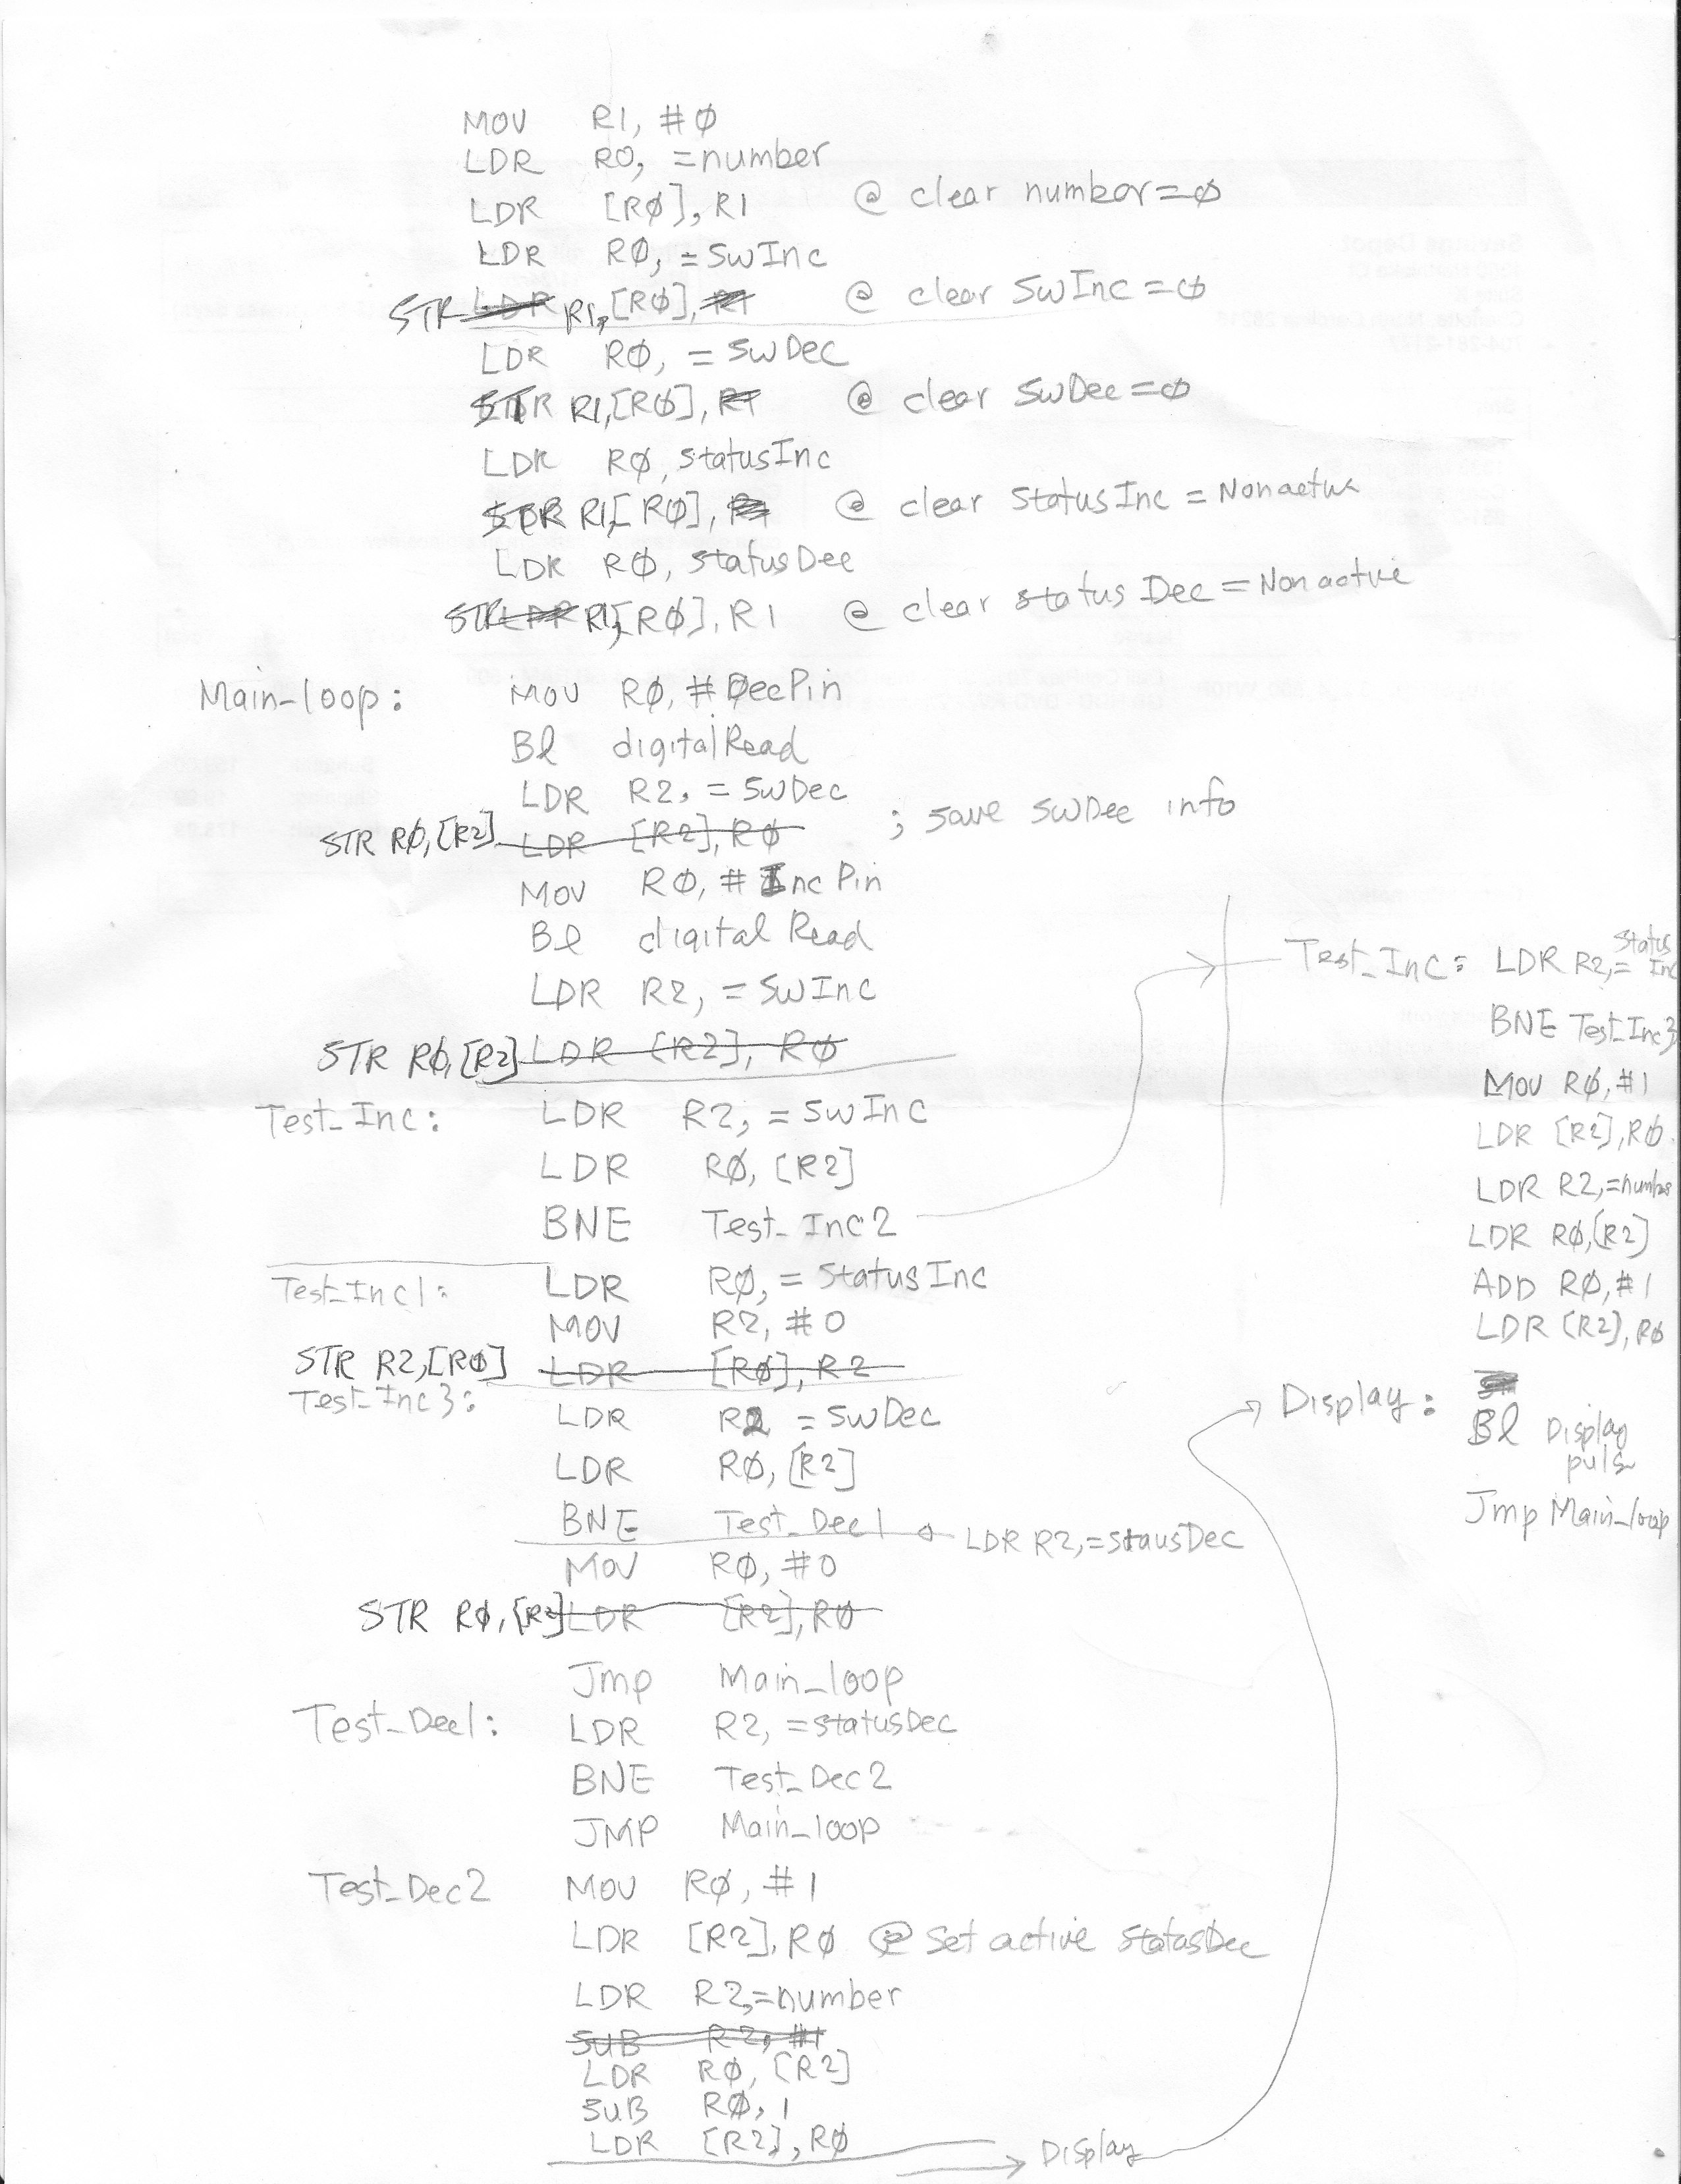 MOV R1, #0
LDR R0, =number
LDR [R0], R1 @ clear number=0
LDR R0, =SwInc
STR LDR R1, [R0], R1 @ clear SwInc=0
LDR R0, =SwDec
STR R1,[R0], R1 @ clear SwDec=0
LDR R0, statusInc
STR R1,[R0], @ clear StatusInc = Nonactve
LDR R0, statusDec
STR LDR R1,[R0], R1 @ clear status Dec = Nonactve
Main_loop: MOV R0, #DecPin
Bl digitalRead
LDR R2, =SwDec
STR R0,[R2] LDR [R2], R0 ; save swDec info
MOV R0, #IncPin
Bl digital Read
LDR R2, =SwInc
STR R0,[R2] LDR [R2], R0
Test_Inc: LDR R2, =SwInc
LDR R0, [R2]
BNE Test_Inc2
Test_Inc1: LDR R0, =StatusInc
MOV R2, #0
STR R2,[R0] LDR [R0], R2
Test_Inc3: LDR R2 =SwDec
LDR R0, [R2]
BNE Test_Dec1 LDR R2,=stausDec
MOV R0, #0
STR R0,[R2] LDR [R2], R0
Jmp Main_loop
Test_Dec1: LDR R2, =statusDec
BNE Test_Dec2
JMP Main_loop
Test_Dec2 MOV R0, #1
LDR [R2], R0 @ Set active statusDec
LDR R2,=number
SUB R2, #1
LDR R0, [R2]
SUB R0, 1
LDR [R2], R0
Display
Test_Inc: LDR R2,= Status Inc
BNE Test_Inc3
MOV R0,#1
LDR [R2],R0
LDR R2,=number
LDR R0,[R2]
ADD R0,#1
LDR [R2],R0
Display:
Bl Display
puls
Jmp Main_loop